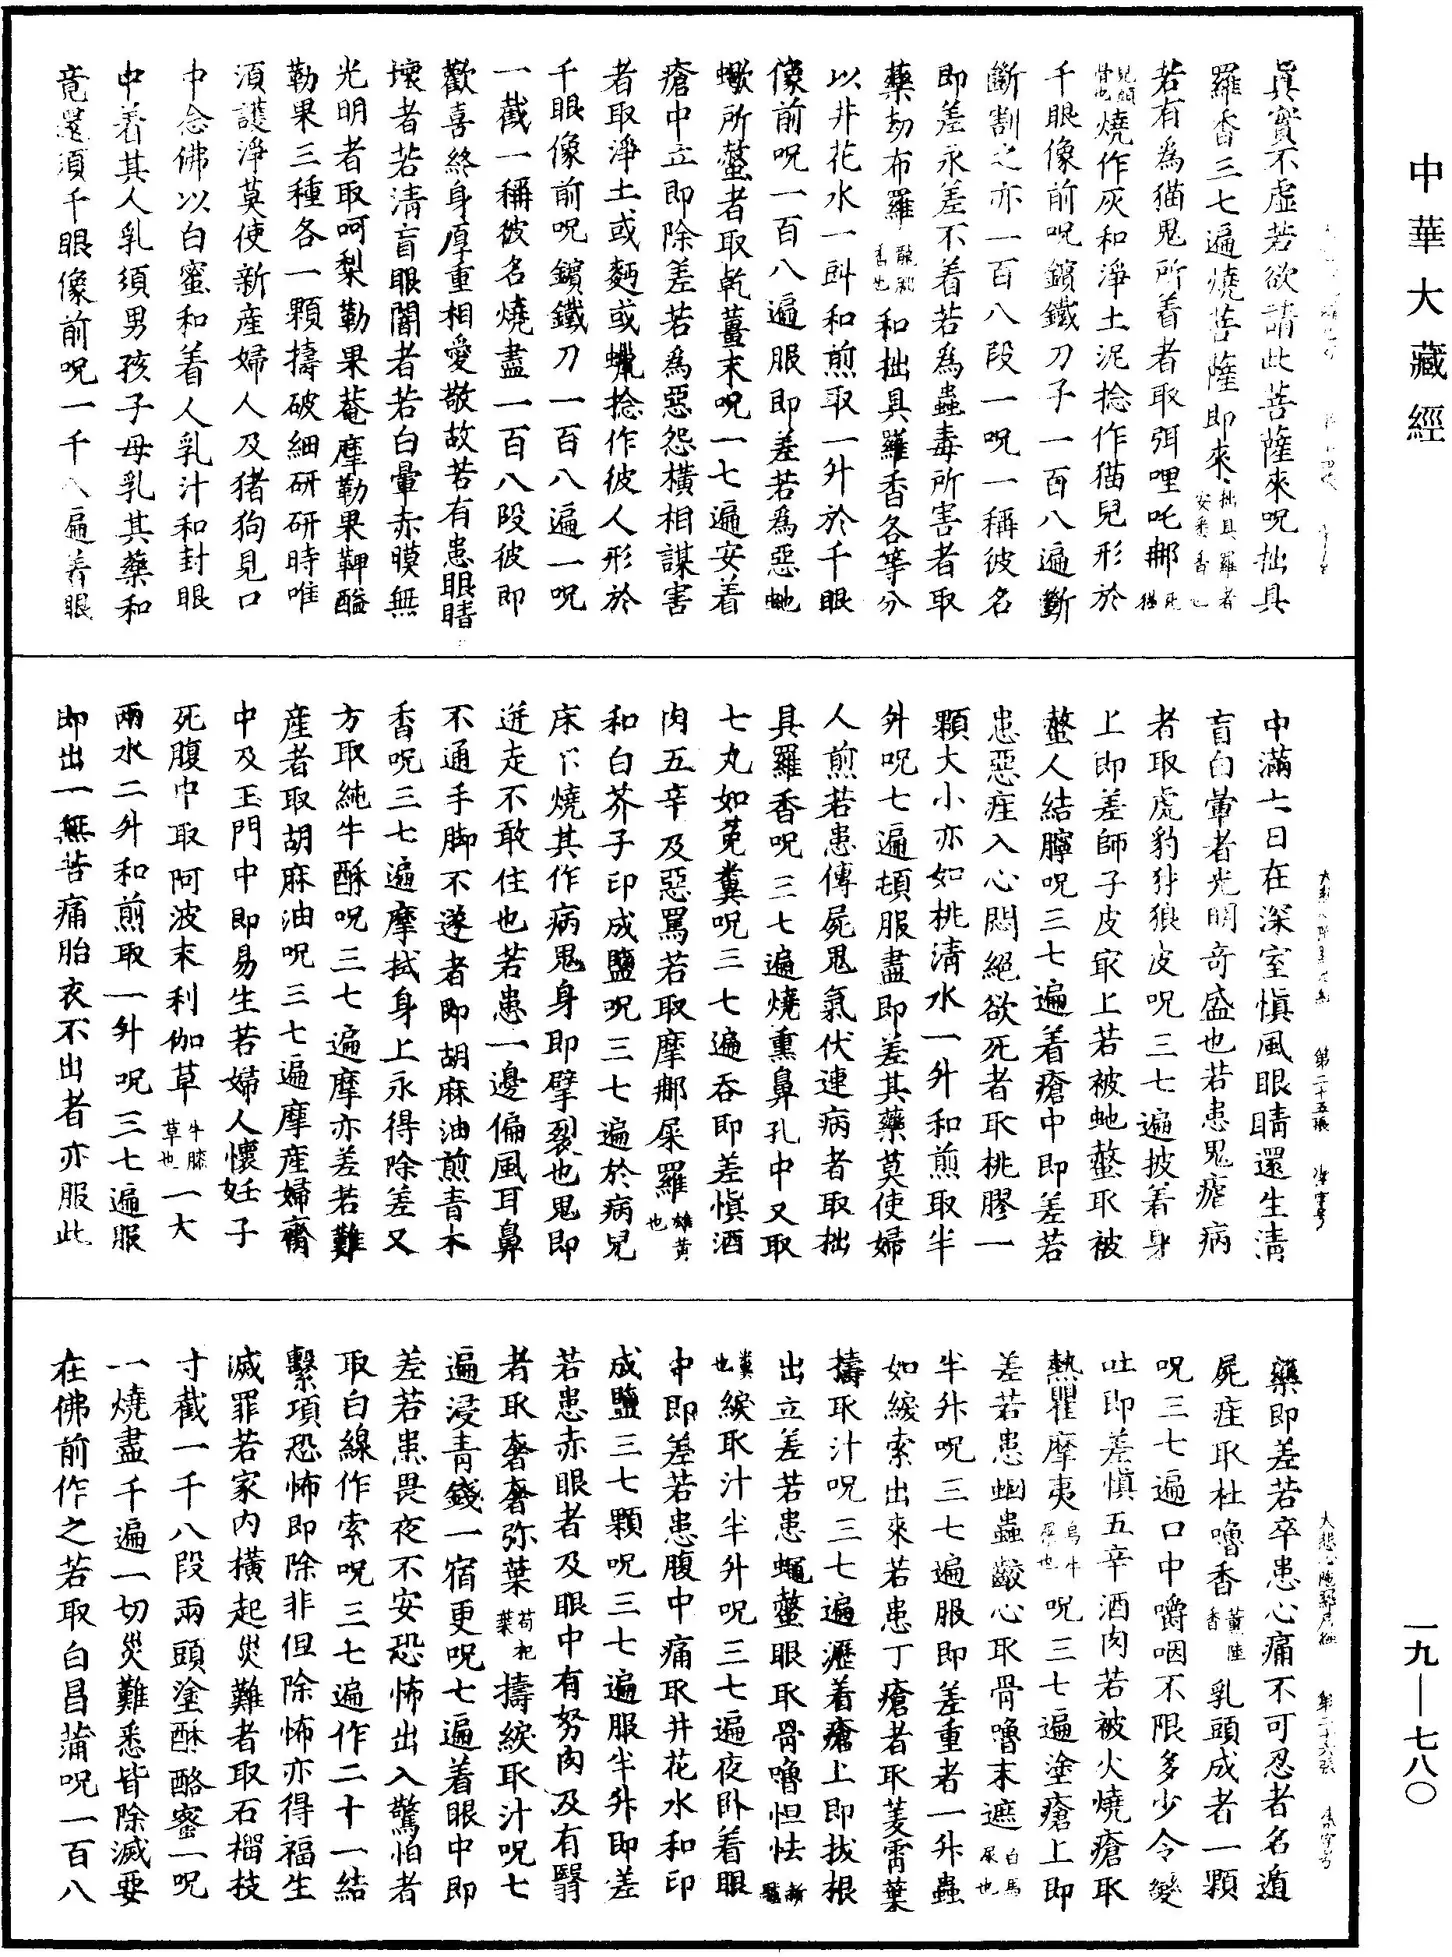 中華大藏經
真實不虛若欲請此菩薩來呪拙具
羅香三七遍燒菩薩即來拙具羅者安悉香也
若有為猫鬼所着者取弭哩吒郍死猫
兒頭骨也燒作灰和淨土泥捻作猫兒形於
千眼像前呪鑌鐵刀子一百八遍斷
斷割之亦一百八段一呪一稱彼名
即差永差不着若為蟲毒所害者取
藥劫布羅龍腦香也和拙具羅香各等分
以井花水一㪷和煎取一升於千眼
像前呪一百八遍服即差若為惡虵
蠍所螫者取乾薑末呪一七遍安着
瘡中立即除差若為惡怨橫相謀害
者取淨土或麪或蠟捻作彼人形於
千眼像前呪鑌鐵刀一百八遍一呪
一截一稱彼名燒盡一百八段彼即
歡喜終身厚重相愛敬故若有患眼睛
壞者若清盲眼闇者若白暈赤膜無
光明者取呵梨勒果菴摩勒果鞞醯
勒果三種各一顆擣破細研研時唯
須護淨莫使新產婦人及猪狗見口
中念佛以白蜜和着人乳汁和封眼
中着其人乳須男孩子母乳其藥和
竟還須千眼像前呪一千八遍着眼
中滿七日在深室慎風眼睛還生清
盲白暈者光明奇盛也若患鬼瘧病
者取虎豹犲狼皮呪三七遍披着身
上即差師子皮㝡上若被虵螫取被
螫人結聹呪三七遍着瘡中即差若
患惡疰入心悶絕欲死者取桃膠一
顆大小亦如桃清水一升和煎取半
升呪七遍頓服盡即差其藥莫使婦
人煎若患傳屍鬼氣伏連病者取拙
具羅香呪三七遍燒熏鼻孔中又取
七丸如兔糞呪三七遍吞即差慎酒
肉五辛及惡罵若取摩郍屎羅雄黃也
和白芥子印成鹽呪三七遍於病兒
床下燒其作病鬼身即擘裂也鬼即
迸走不敢住也若患一邊偏風耳鼻
不通手脚不遂者即胡麻油煎青木
香呪三七遍摩拭身上永得除差又
方取純牛酥呪三七遍摩亦差若難
產者取胡麻油呪三七遍摩產婦齎
中及玉門中即易生若婦人懷妊子
死腹中取阿波末利伽草牛膝草也一大
兩水二升和煎取一升呪三七遍服
即出一無苦痛胎衣不出者亦服此
藥即差若卒患心痛不可忍者名遁
屍疰取杜嚕香薰陸香乳頭成者一顆
呪三七遍口中嚼咽不限多少令變
吐即差慎五辛酒肉若被火燒瘡取
熱瞿摩夷烏牛屎也呪三七遍塗瘡上即
差若患蛔蟲齩心取骨嚕末遮白馬尿也
半升呪三七遍服即差重者一升蟲
如綟索出來若患丁瘡者取菱霄葉
擣取汁呪三七遍瀝着瘡上即拔根
出立差若患蠅螫眼取骨嚕怛佉新驢
糞也綟取汁半升呪三七遍夜卧着眼
中即差若患腹中痛取井花水和印
成鹽三七顆呪三七遍服半升即差
若患赤眼者及眼中有努肉及有翳
者取奢奢弥葉苟杞葉擣綟取汁呪七
遍浸青錢一宿更呪七遍着眼中即
差若患畏夜不安恐怖出入驚怕者
取白線作索呪三七遍作二十一結
繫項恐怖即除非但除怖亦得福生
滅罪若家內橫起災難者取石榴枝
寸截一千八段兩頭塗酥酪蜜一呪
一燒盡千遍一切災難悉皆除滅要
在佛前作之若取白昌蒲呪一百八
第二十五張
大悲心陀羅尼經 第二十六張
一九—七八〇